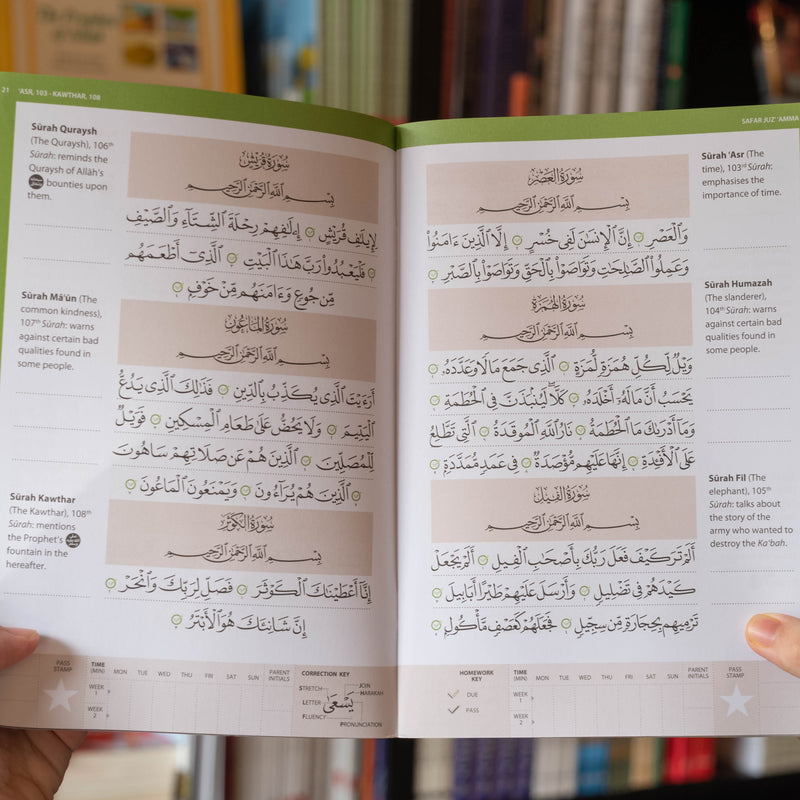 SAFAR JUZ' 'AMMA
Sūrah 'Asr (The
time), 103rd Sūrah:
emphasises the
importance of time.
سُورَةُ الْعَصْرِ
بِسْمِ اللَّهِ الرَّحْمَٰنِ الرَّحِيمِ
وَٱلْعَصْرِ ۝ إِنَّ ٱلْإِنسَٰنَ لَفِى خُسْرٍ ۝ إِلَّا ٱلَّذِينَ ءَامَنُوا۟
وَعَمِلُوا۟ ٱلصَّٰلِحَٰتِ وَتَوَاصَوْا۟ بِٱلْحَقِّ وَتَوَاصَوْا۟ بِٱلصَّبْرِ ۝
Sūrah Humazah
(The slanderer),
104th Sūrah: warns
against certain bad
qualities found in
some people.
سُورَةُ الْهُمَزَةِ
بِسْمِ اللَّهِ الرَّحْمَٰنِ الرَّحِيمِ
وَيْلٌ لِّكُلِّ هُمَزَةٍ لُّمَزَةٍ ۝ ٱلَّذِى جَمَعَ مَالًا وَعَدَّدَهُۥ ۝
يَحْسَبُ أَنَّ مَالَهُۥٓ أَخْلَدَهُۥ ۝ كَلَّا لَيُنۢبَذَنَّ فِى ٱلْحُطَمَةِ ۝
وَمَآ أَدْرَىٰكَ مَا ٱلْحُطَمَةُ ۝ نَارُ ٱللَّهِ ٱلْمُوقَدَةُ ۝ ٱلَّتِى تَطَّلِعُ
عَلَى ٱلْأَفْـِٔدَةِ ۝ إِنَّهَا عَلَيْهِم مُّؤْصَدَةٌ ۝ فِى عَمَدٍ مُّمَدَّدَةٍۭ ۝
Sūrah Fīl (The
elephant), 105th
Sūrah: talks about
the story of the
army who wanted to
destroy the Ka'bah.
سُورَةُ الْفِيلِ
بِسْمِ اللَّهِ الرَّحْمَٰنِ الرَّحِيمِ
أَلَمْ تَرَ كَيْفَ فَعَلَ رَبُّكَ بِأَصْحَٰبِ ٱلْفِيلِ ۝ أَلَمْ يَجْعَلْ
كَيْدَهُمْ فِى تَضْلِيلٍ ۝ وَأَرْسَلَ عَلَيْهِمْ طَيْرًا أَبَابِيلَ ۝
تَرْمِيهِم بِحِجَارَةٍ مِّن سِجِّيلٍ ۝ فَجَعَلَهُمْ كَعَصْفٍ مَّأْكُولٍۭ ۝
HOMEWORK
KEY
DUE
PASS
TIME
(MIN) MON TUE WED THU FRI SAT SUN PARENT
INITIALS
PASS
STAMP
WEEK
1
WEEK
2
21 'ASR, 103 - KAWTHAR, 108
Sūrah Quraysh
(The Quraysh), 106th
Sūrah: reminds the
Quraysh of Allāh's
bounties upon
them.
سُورَةُ قُرَيْشٍ
بِسْمِ اللَّهِ الرَّحْمَٰنِ الرَّحِيمِ
لِإِيلَٰفِ قُرَيْشٍ ۝ إِۦلَٰفِهِمْ رِحْلَةَ ٱلشِّتَآءِ وَٱلصَّيْفِ
۝ فَلْيَعْبُدُوا۟ رَبَّ هَٰذَا ٱلْبَيْتِ ۝ ٱلَّذِىٓ أَطْعَمَهُم
مِّن جُوعٍ وَءَامَنَهُم مِّنْ خَوْفٍۭ ۝
Sūrah Mā'ūn (The
common kindness),
107th Sūrah: warns
against certain bad
qualities found in
some people.
سُورَةُ الْمَاعُونِ
بِسْمِ اللَّهِ الرَّحْمَٰنِ الرَّحِيمِ
أَرَءَيْتَ ٱلَّذِى يُكَذِّبُ بِٱلدِّينِ ۝ فَذَٰلِكَ ٱلَّذِى يَدُعُّ
ٱلْيَتِيمَ ۝ وَلَا يَحُضُّ عَلَىٰ طَعَامِ ٱلْمِسْكِينِ ۝ فَوَيْلٌ
لِّلْمُصَلِّينَ ۝ ٱلَّذِينَ هُمْ عَن صَلَاتِهِمْ سَاهُونَ
۝ ٱلَّذِينَ هُمْ يُرَآءُونَ ۝ وَيَمْنَعُونَ ٱلْمَاعُونَ ۝
Sūrah Kawthar
(The Kawthar), 108th
Sūrah: mentions
the Prophet's
fountain in the
hereafter.
سُورَةُ الْكَوْثَرِ
بِسْمِ اللَّهِ الرَّحْمَٰنِ الرَّحِيمِ
إِنَّآ أَعْطَيْنَٰكَ ٱلْكَوْثَرَ ۝ فَصَلِّ لِرَبِّكَ وَٱنْحَرْ ۝
إِنَّ شَانِئَكَ هُوَ ٱلْأَبْتَرُ ۝
PASS
STAMP
TIME
(MIN) MON TUE WED THU FRI SAT SUN PARENT
INITIALS
WEEK
1
WEEK
2
CORRECTION KEY
STRETCH
LETTER
FLUENCY
يَسْعَىٰ
JOIN
HARAKAH
PRONUNCIATION